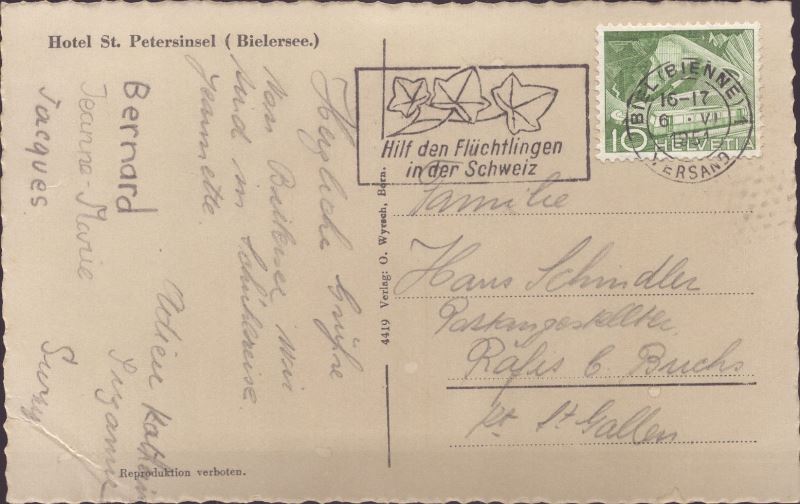 Hotel St. Petersinsel (Bielersee.)
Herzliche Grüsse
von
sind
Schulreise.
Jeannette.
Bernard
Jeanne-Marie
Jacques
Suzanne
4419 Verlag: O. Wyrsch, Bern.
Reproduktion verboten.
Hilf den Flüchtlingen
in der Schweiz
10 HELVETIA
BIEL (BIENNE) 1
16-17
6 VI
1951
VERSAND
Familie
Hans Schindler
Postangestellter
Räfis b. Buchs
Kt. St Gallen